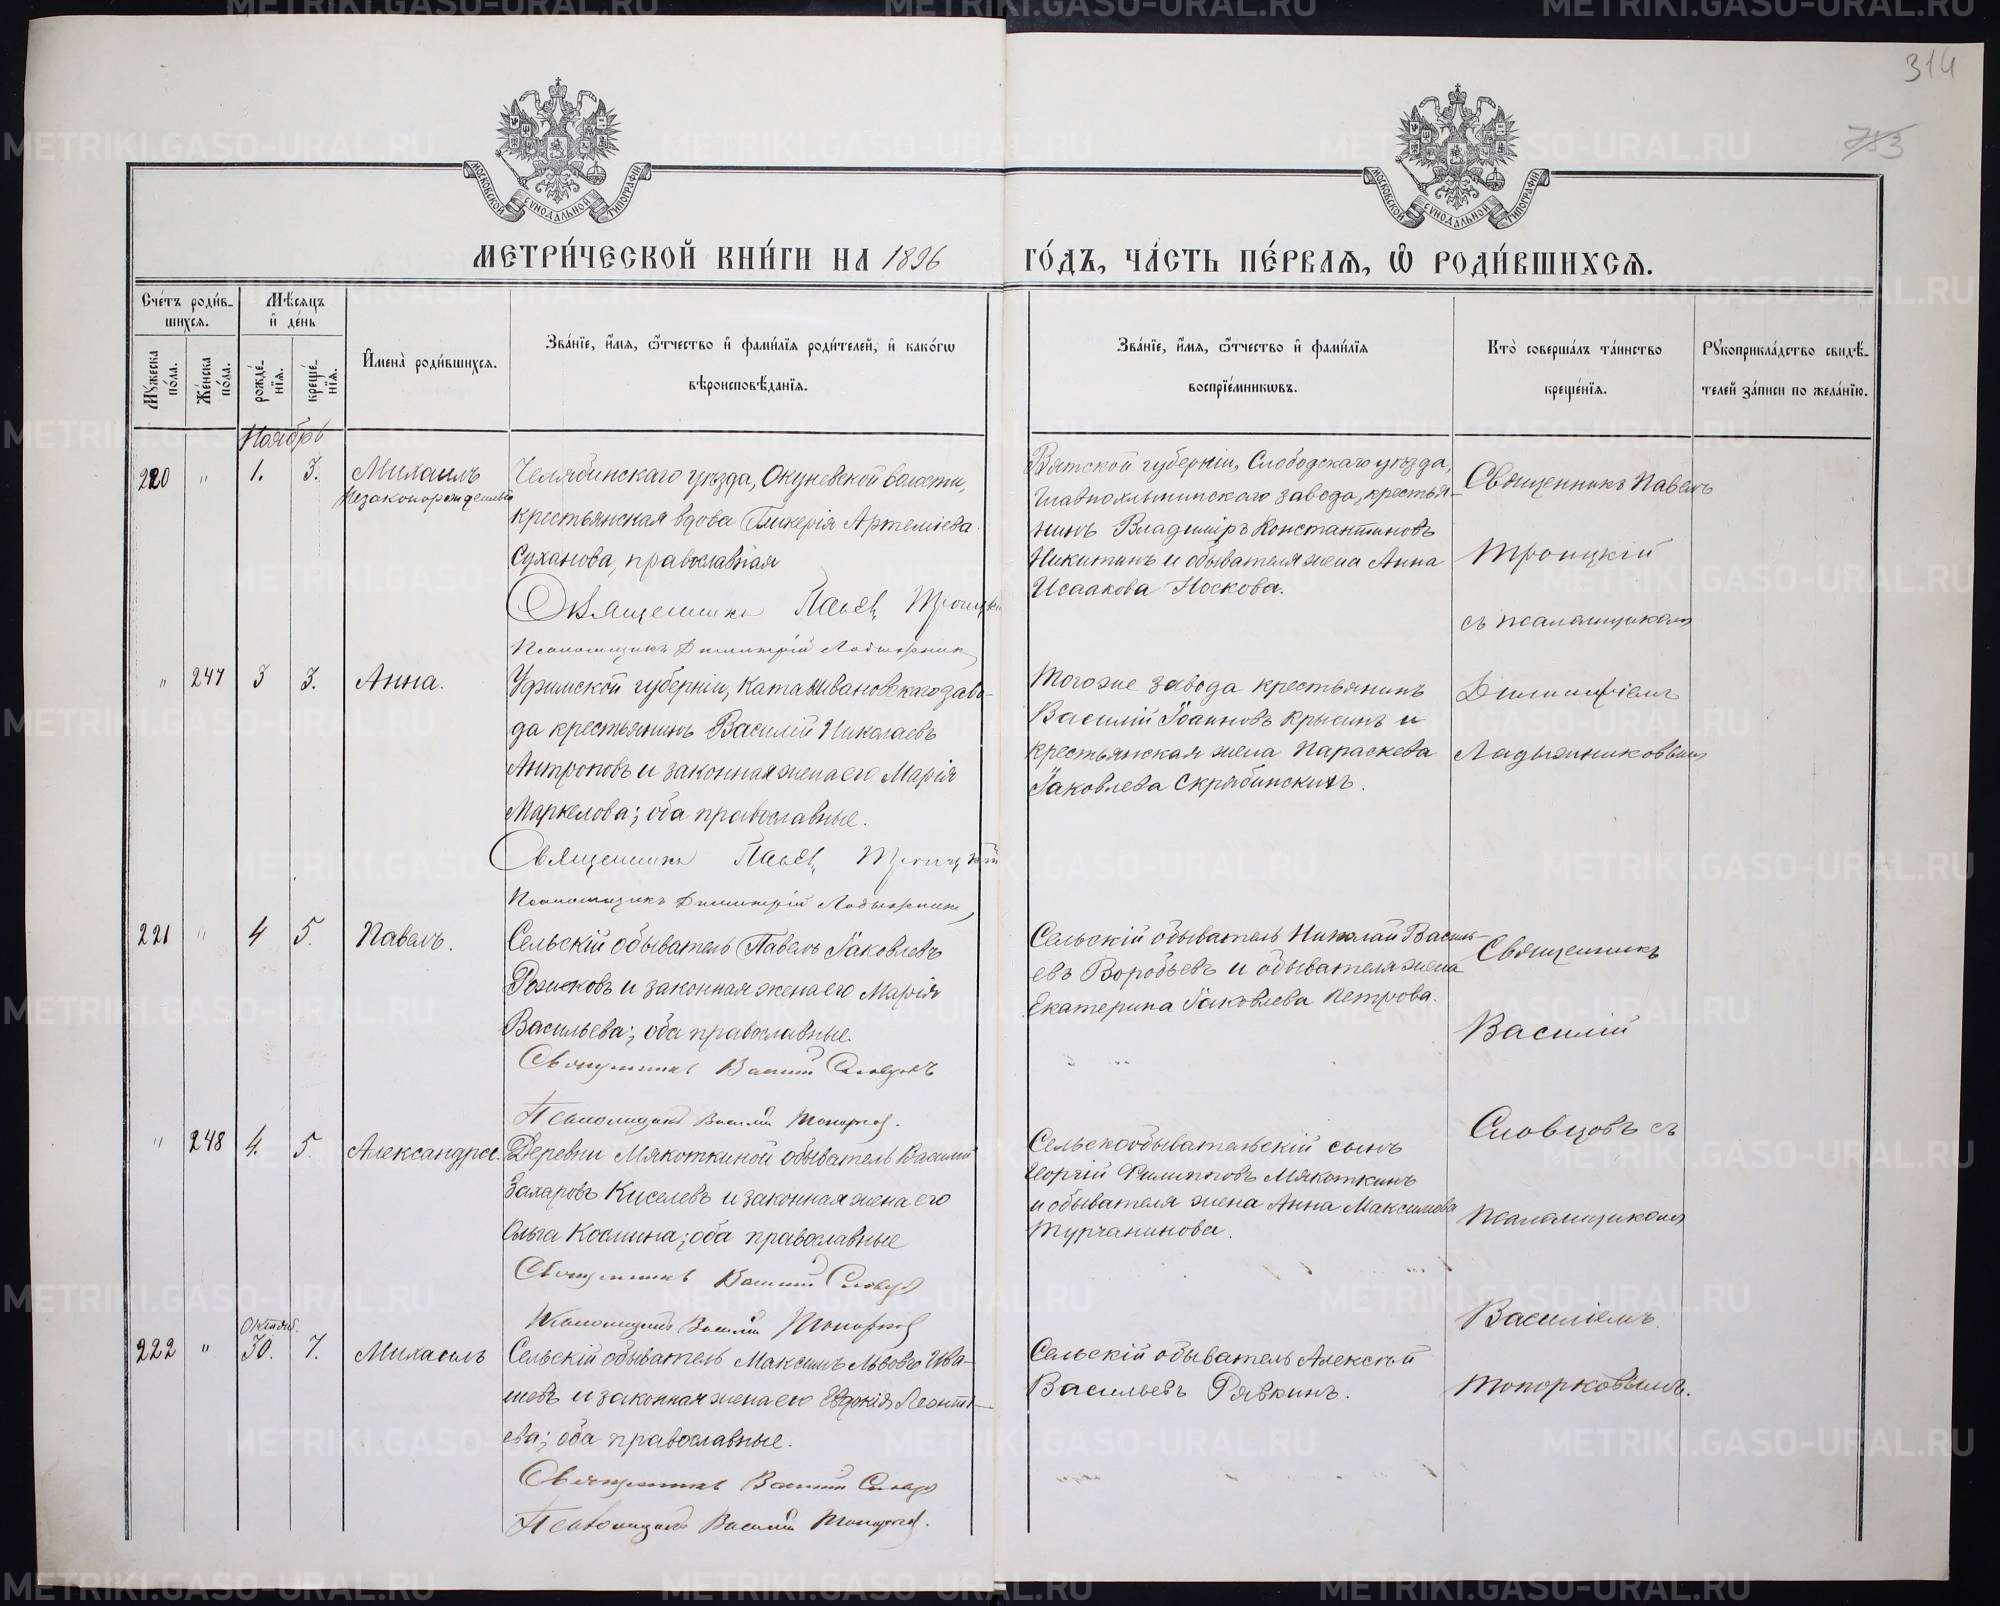 314
713
МОСКОВСКОЙ СѴНОДАЛЬНОЙ ТИПОГРАФІИ
МОСКОВСКОЙ СѴНОДАЛЬНОЙ ТИПОГРАФІИ
МЕТРИ́ЧЕСКОЙ КНИ́ГИ НА 1896 ГО́ДЪ, ЧА́СТЬ ПЕ́РВАЯ, Ѽ РОДИ́ВШИХСЯ.
Сче́тъ роди́в-
шихся.
Мѣ́сяцъ
и҆ де́нь
Мꙋ́жеска по́ла.
Же́нска по́ла.
рожде́-
нїя.
креще́-
нїя.
И҆мена̀ роди́вшихся.
Зва́нїе, и҆́мя, ѻ҆́тчество и҆ фами́лїя роди́телей, и҆ како́гѡ
вѣроисповѣ́данїя.
Зва́нїе, и҆́мя, ѻ҆́тчество и҆ фами́лїя
воспрїе́мникѡвъ.
Кто̀ соверша́лъ та́инство
креще́нїя.
Рꙋкоприкла́дство свидѣ́-
телей за́писи по жела́нїю.
Ноябрь
220 " 1. 3. Михаилъ
незаконорожденный
Челябинскаго уѣзда, Окуневской волости,
крестьянская вдова Гликерія Артеміева
Суханова, православная
Священникъ Павелъ Троицкій
Псаломщикъ Димитрій Ладыжник
Вятской губерніи, Слободскаго уѣзда,
завода, крестья-
нинъ Владиміръ Константиновъ
Никитинъ и обывателя жена Анна
Исаакова Носкова.
Священникъ Павелъ
Троицкій
съ псаломщикомъ
Димитріемъ
Ладыжниковымъ
" 247 3 3. Анна.
Уфимской губерніи, Катавивановскаго заво-
да крестьянинъ Василій Николаевъ
Антроповъ и законная жена его Марія
Маркелова; оба православные.
Священникъ Павелъ Троицкій
Псаломщикъ Димитрій Ладыжник
Того же завода крестьянинъ
Василій Іоанновъ Крысинъ и
крестьянская жена Параскева
Іаковлева Скрябинскихъ.
221 " 4 5. Павелъ.
Сельскій обыватель Павелъ Іаковлевъ
Рожковъ и законная жена его Марія
Васильева; оба православные.
Священникъ Василій Словцовъ
Псаломщикъ Василій Топорков.
Сельскій обыватель Николай Василь-
евъ Воробьевъ и обывателя жена
Екатерина Іаковлева Петрова.
Священникъ
Василій
Словцовъ съ
псаломщикомъ
Василіемъ
Топорковымъ.
" 248 4. 5. Александра.
Деревни Мякоткиной обыватель Василій
Захаровъ Киселевъ и законная жена его
Ольга Косьмина; оба православные
Священникъ Василій Словцов
Псаломщикъ Василій Топорков
Сельскообывательскій сынъ
Георгій Филипповъ Мякоткинъ
и обывателя жена Анна Максимова
Турчанинова.
Октяб.
222 " 30. 7. Михаилъ
Сельскій обыватель Максимъ Львовъ Ива-
шевъ и законная жена его Евдокія Леонть-
ева; оба православные.
Священникъ Василій Словцов
Псаломщикъ Василій Топорков.
Сельскій обыватель Алексѣй
Васильевъ Рявкинъ.
METRIKI.GASO-URAL.RU